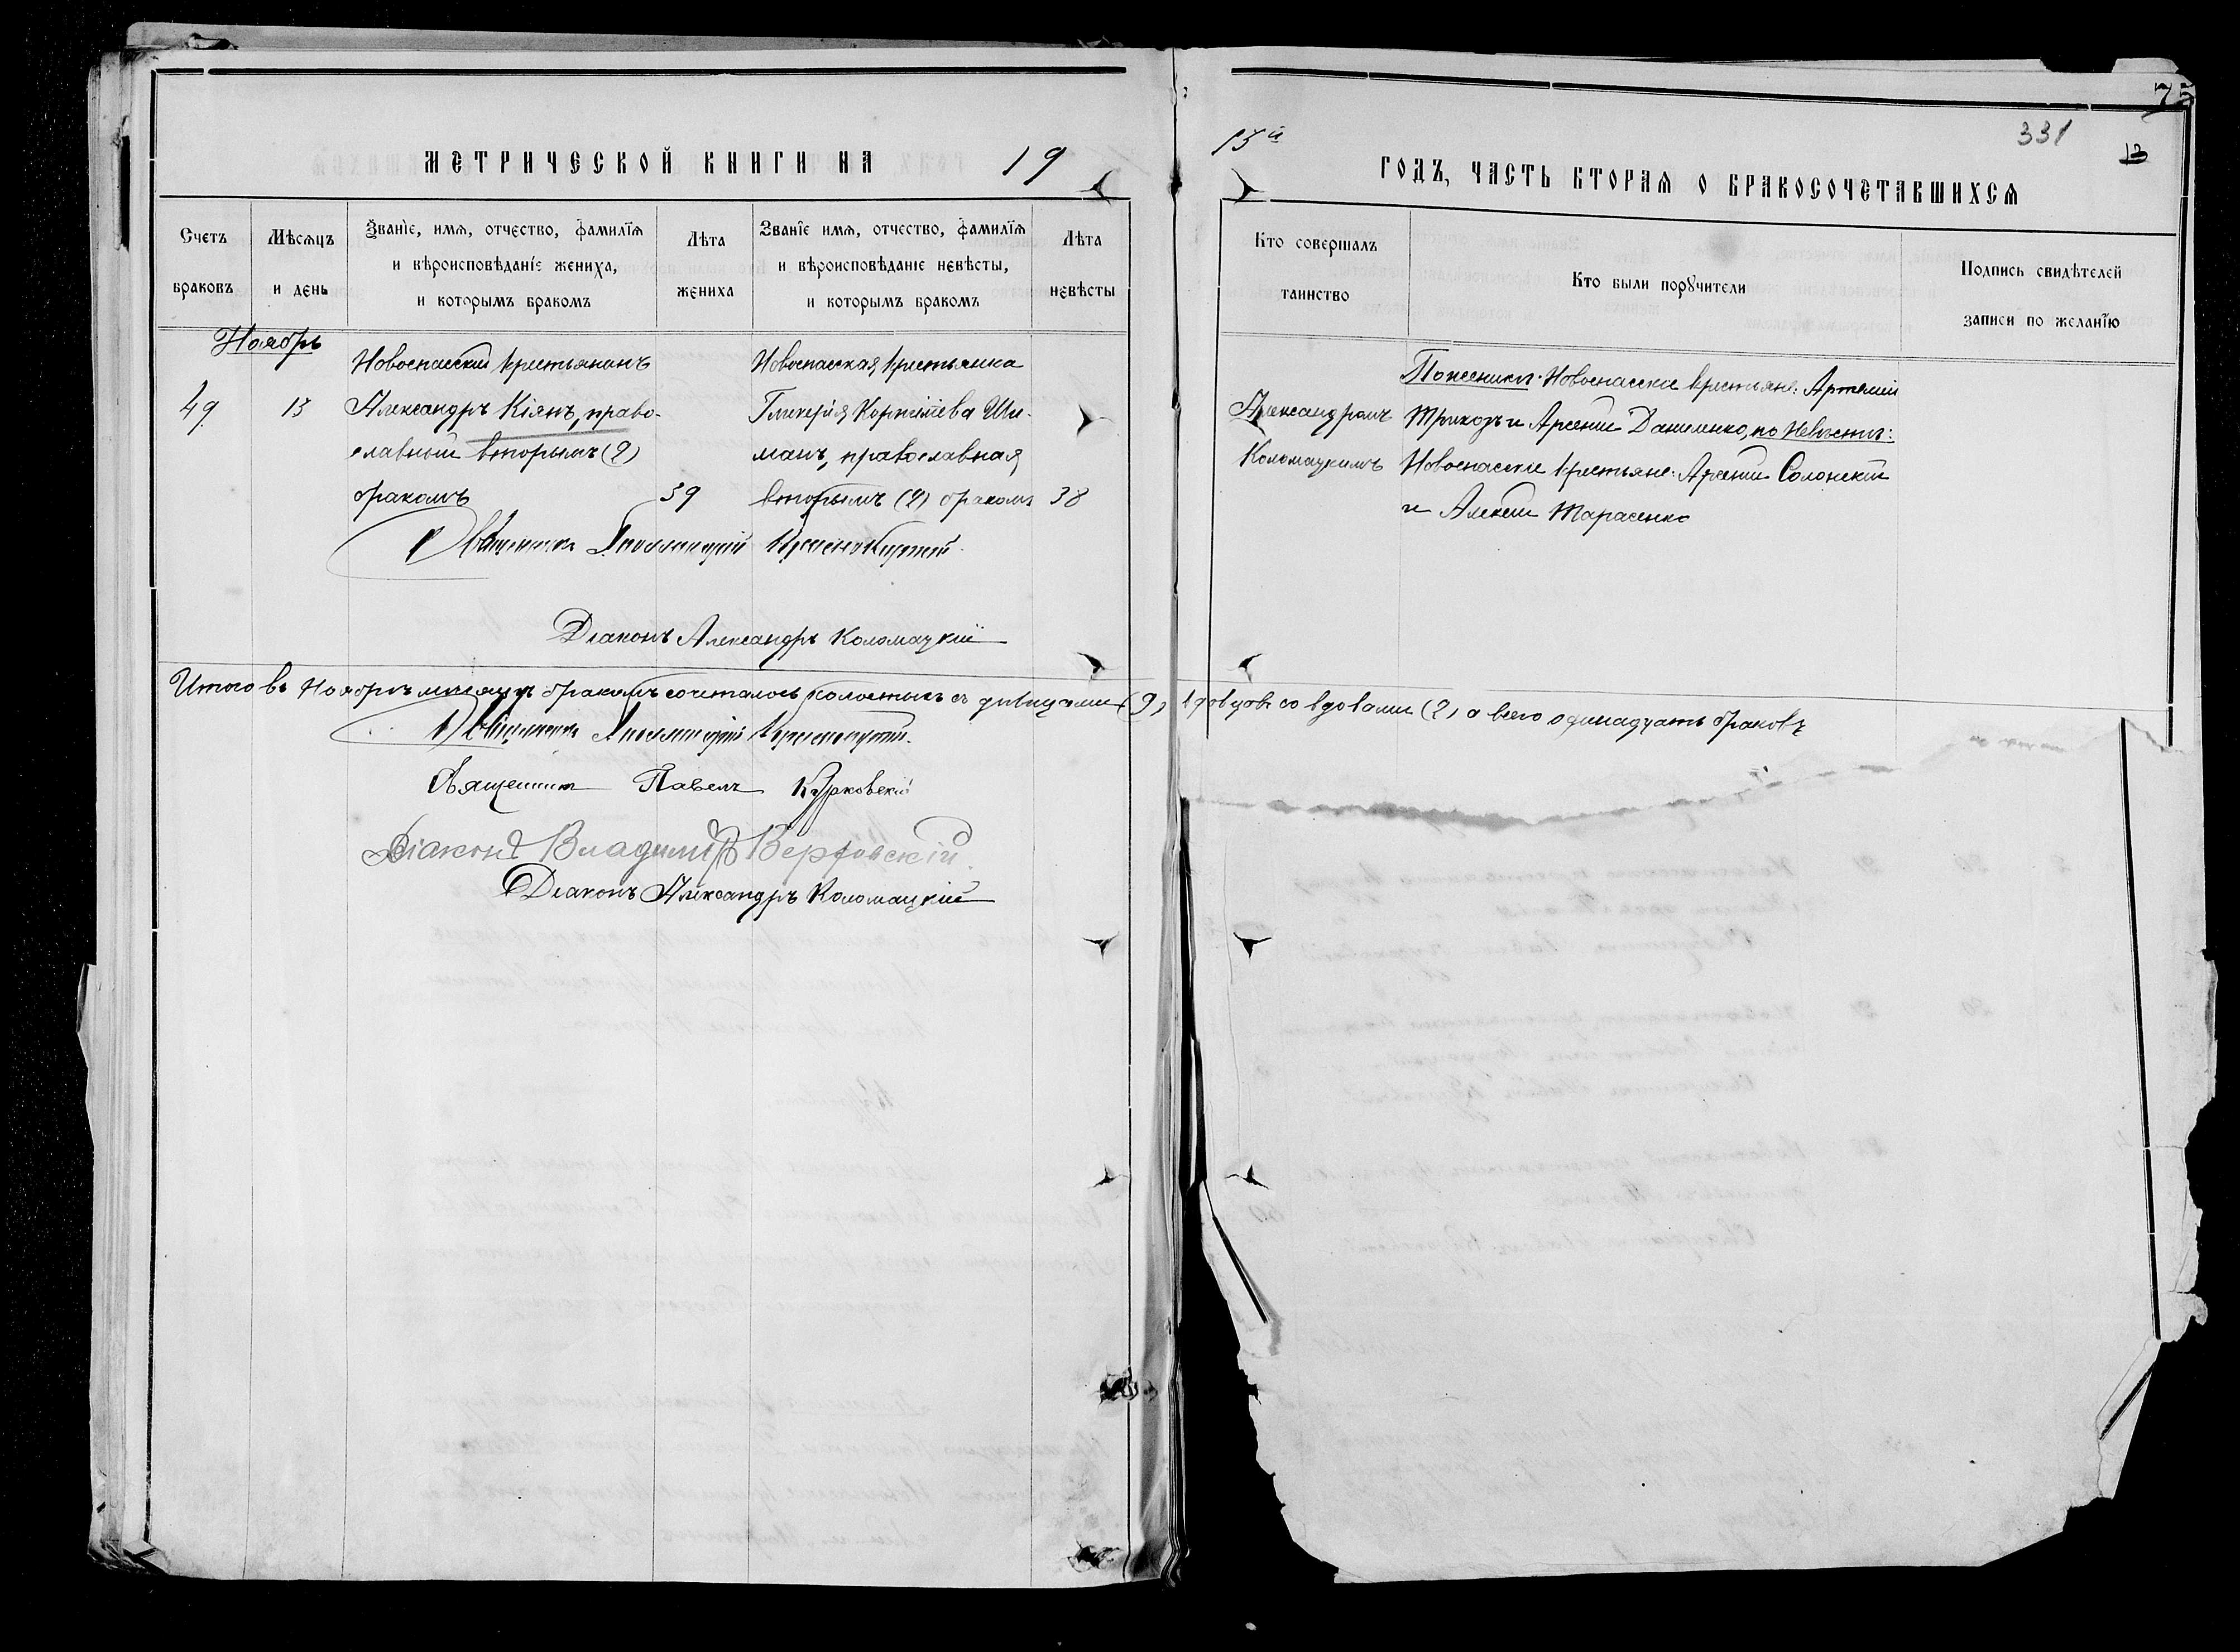 75
331
13
МЕТРИЧЕСКОЙ КНИГИ НА 19
15й ГОДЪ, ЧАСТЬ ВТОРАЯ О БРАКОСОЧЕТАВШИХСЯ
Счетъ браковъ
Мѣсяцъ и день
Званіе, имя, отчество, фамилія
и вѣроисповѣданіе жениха,
и которымъ бракомъ
Лѣта жениха
Званіе имя, отчество, фамилія
и вѣроисповѣданіе невѣсты,
и которымъ бракомъ
Лѣта невѣсты
Кто совершалъ таинство
Кто были поручители
Подпись свидѣтелей
записи по желанію
Ноябрь
49
13
Новоспасскій крестьянинъ
Александръ Кіянъ, право-
славный вторымъ (2)
бракомъ
39
Новоспасская крестьянка
Гликерія Корнѣева Ши-
манъ, православная
вторымъ (2) бракомъ
38
Александромъ
Коломацкимъ
По женихѣ: Новоспасскіе крестьяне: Артемій
Трикозъ и Арсеній Даниленко, по Невѣстѣ:
Новоспасскіе крестьяне: Арсеній Солонскій
и Алексѣй Тарасенко
Священникъ
Діаконъ Александръ Коломацкій
Итого въ Ноябрѣ мѣсяцѣ бракомъ сочеталось холостыхъ съ дѣвицами (9), вдовцовъ со вдовами (2) а всего одинадцать браковъ
Священникъ
Священникъ Павелъ Курковскій
Діаконъ Владиміръ Вертовскій
Діаконъ Александръ Коломацкій